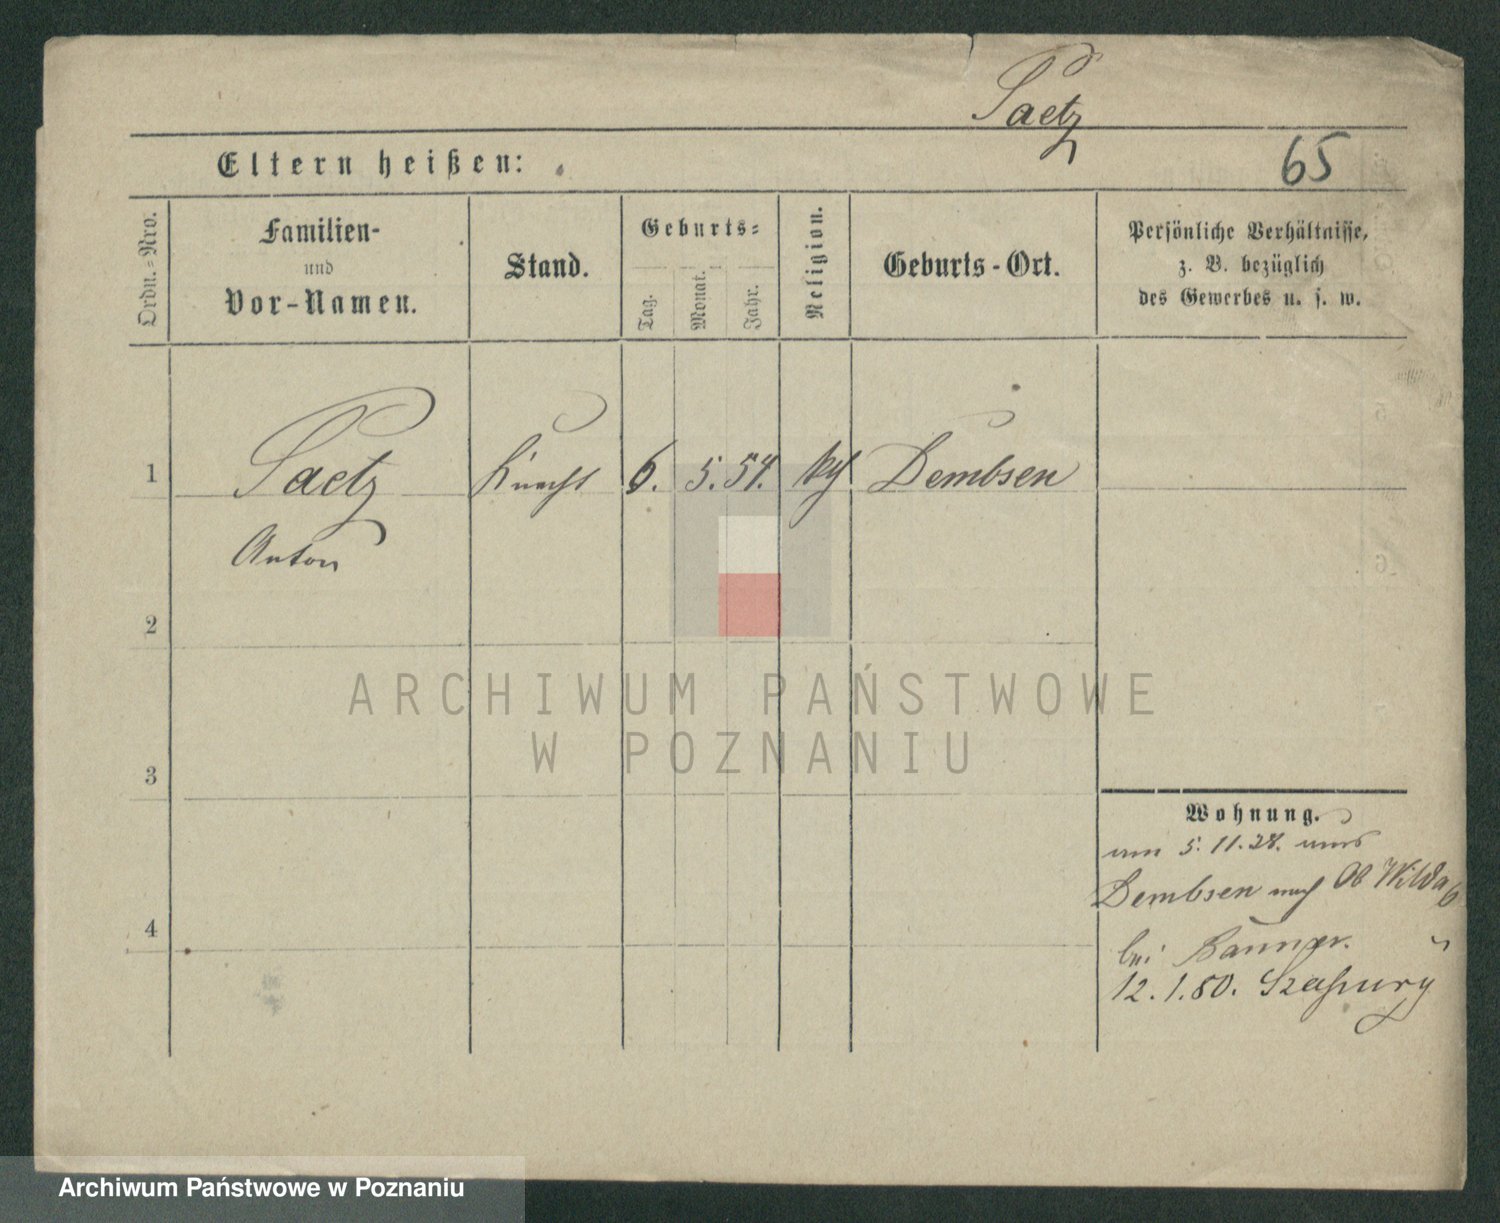 Paetz
65
Eltern heißen:
Ordn.-Nro.
Familien-
und
Vor-Namen.
Stand.
Geburts-
Tag.
Monat.
Jahr.
Religion.
Geburts-Ort.
Persönliche Verhältnisse,
z. B. bezüglich
des Gewerbes u. s. w.
1
Paetz
Knecht
6.
5.
54.
kth
Dembsen
Anton
2
3
4
Wohnung.
5. 11.
Dembsen nach Ob Wilda 6
bei
12. 1. 80.
ARCHIWUM PAŃSTWOWE
W POZNANIU
Archiwum Państwowe w Poznaniu